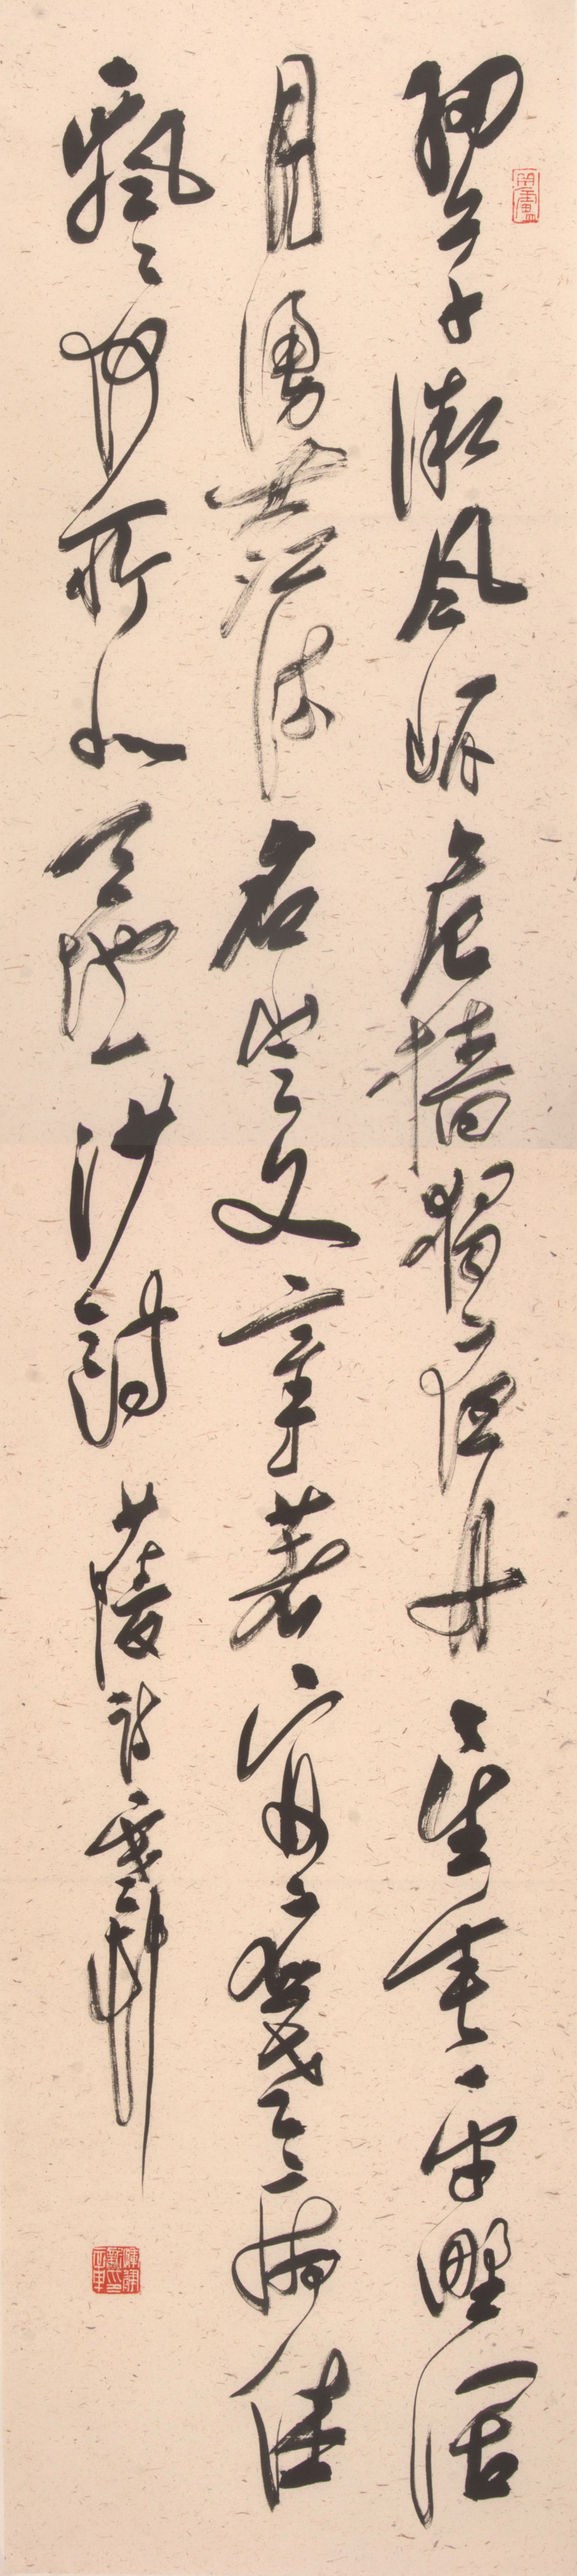 細草微風岸危檣獨夜舟星垂平野闊
月湧大江流名豈文章著官應老病休
飄々何所似天地一沙鷗 少陵詩